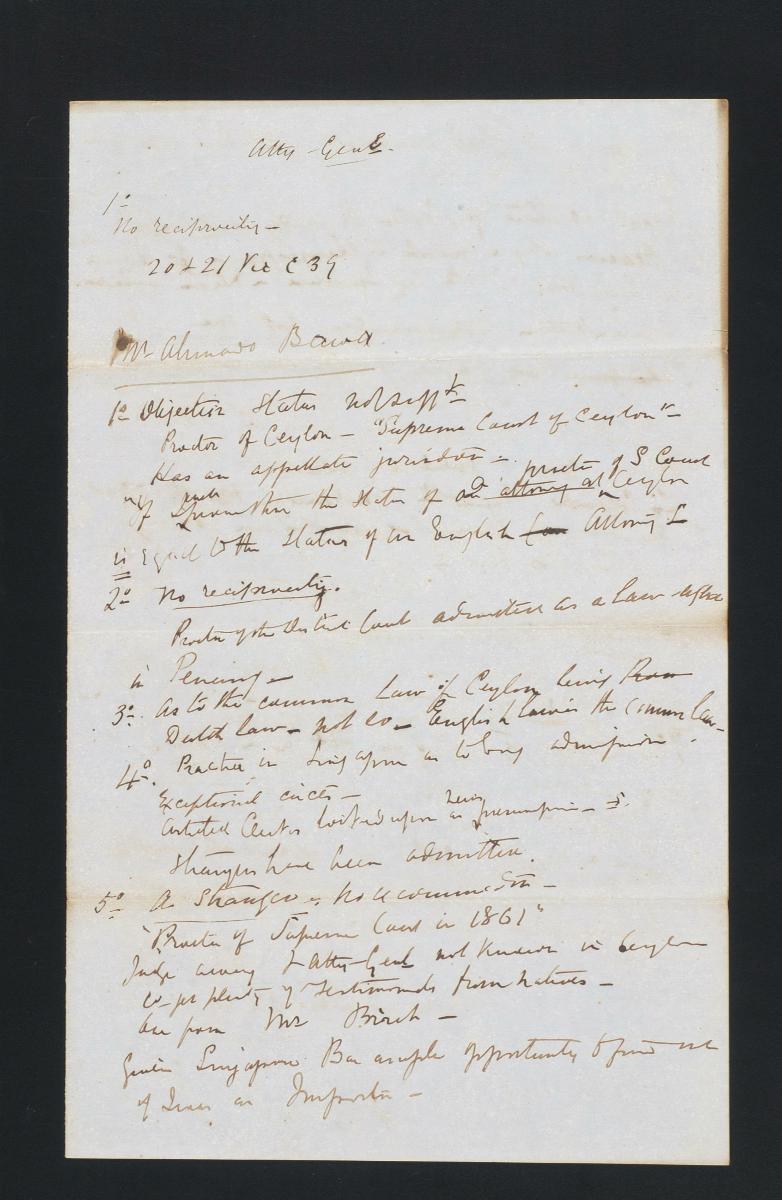 Atty Genl.
1o
No reciprocity —
20 & 21 Vic c 39
Mr Ahmado Bawa
1o Objection Status not suff t
Proctor of Ceylon — "Supreme Court of Ceylon" —
Has an appellate
proctor of S Court
of the status of an attorney at Ceylon
is equal to the status of an English Attorney
2o No reciprocity.
Proctor of the District Court admitted as a Law agent
in Penang —
3o As to the common Law of Ceylon being Roman
Dutch law — not so — English law is the common law —
4o. Practice in Singapore as to admission.
Exceptional circes —
Articled Clerks looked upon as
Strangers have been admitted.
5o A Stranger. No recommendation —
"Proctor of Supreme Court in 1861"
Judge away & Atty Genl not known in Ceylon
plenty of Testimonials from natives —
one from Mr Birch —
Given Singapore Bar ample opportunity to find out
if I was an Impostor —